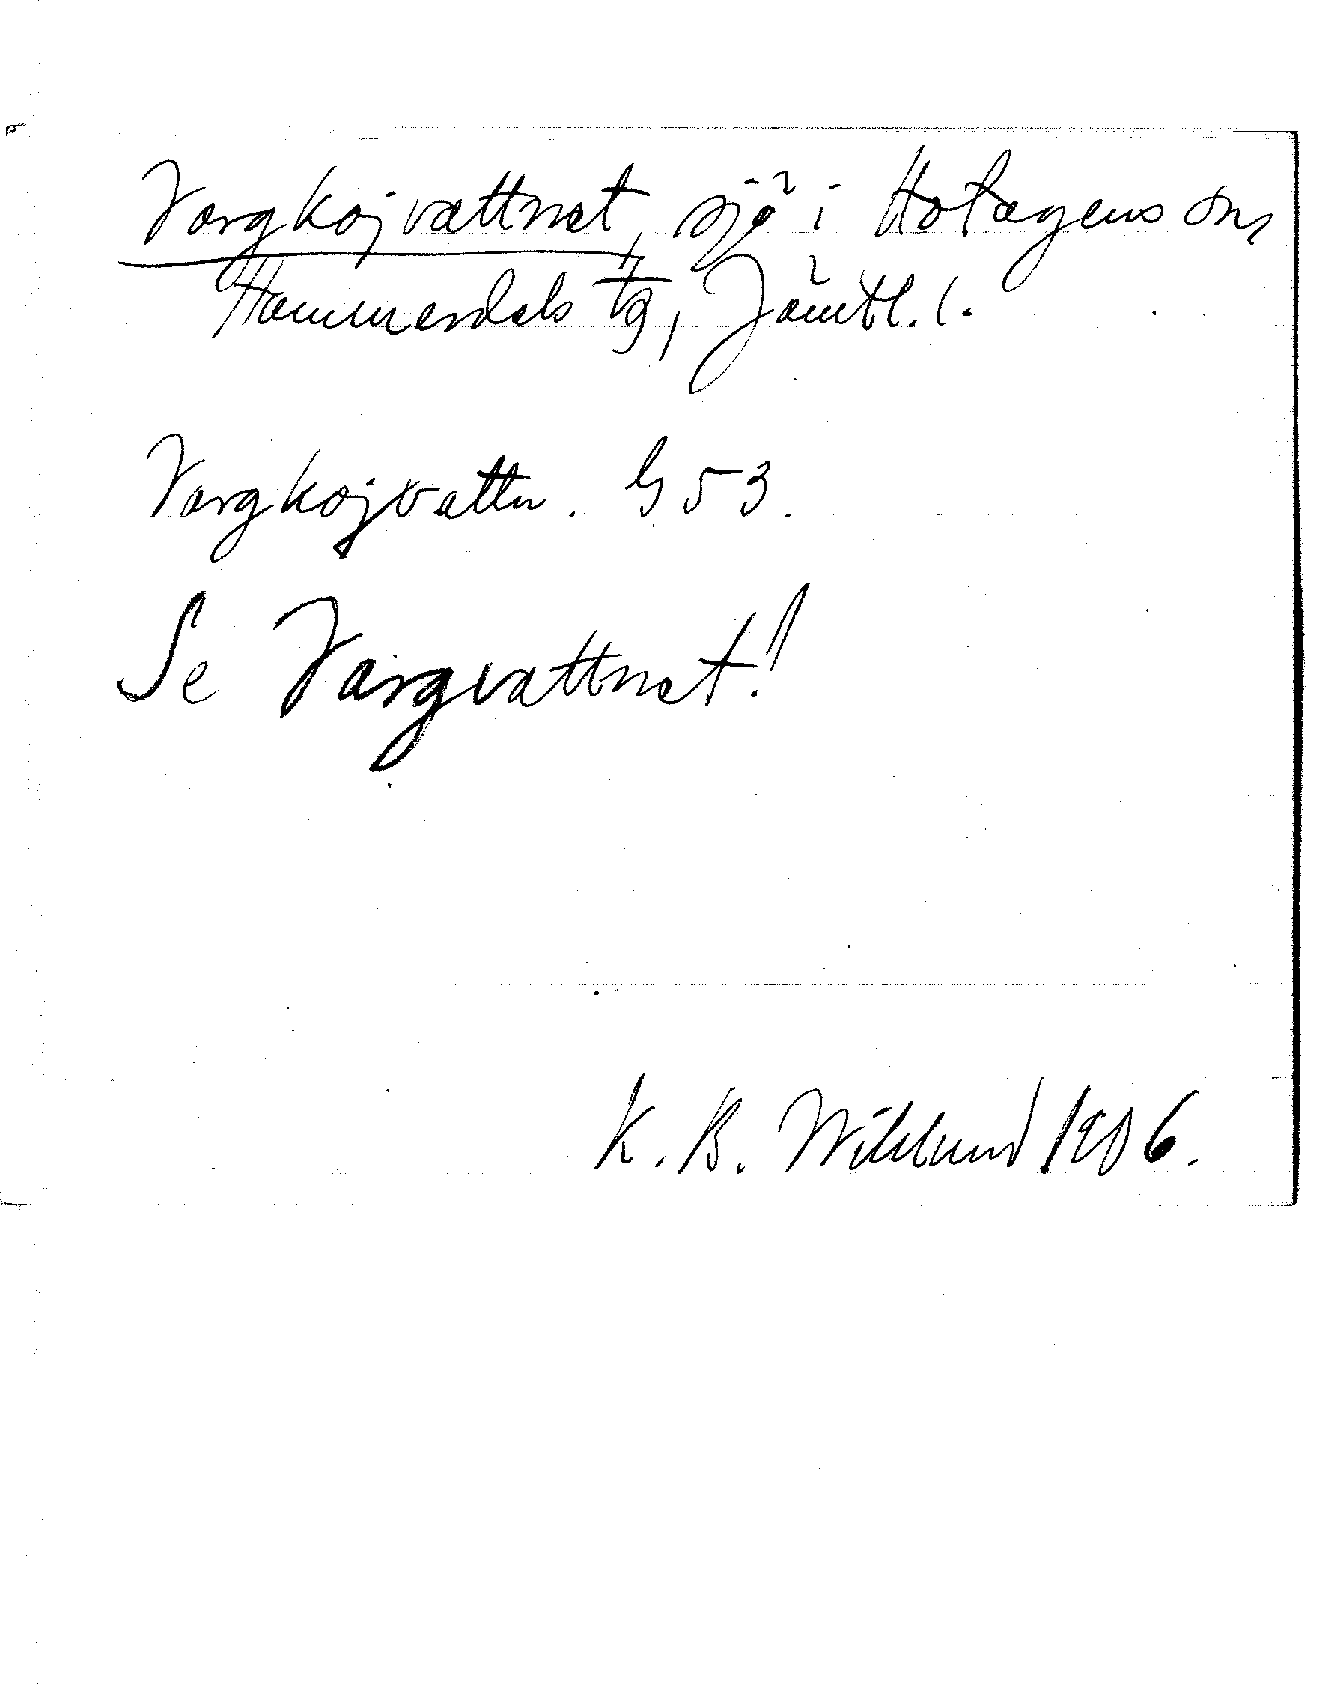 Vargkojvattnet, sjö i Hotagens sn,
Hammerdals tg, Jämtl. l.
Vargkojvattn. G 53.
Se Vargvattnet!
K. B. Wiklund 1906.